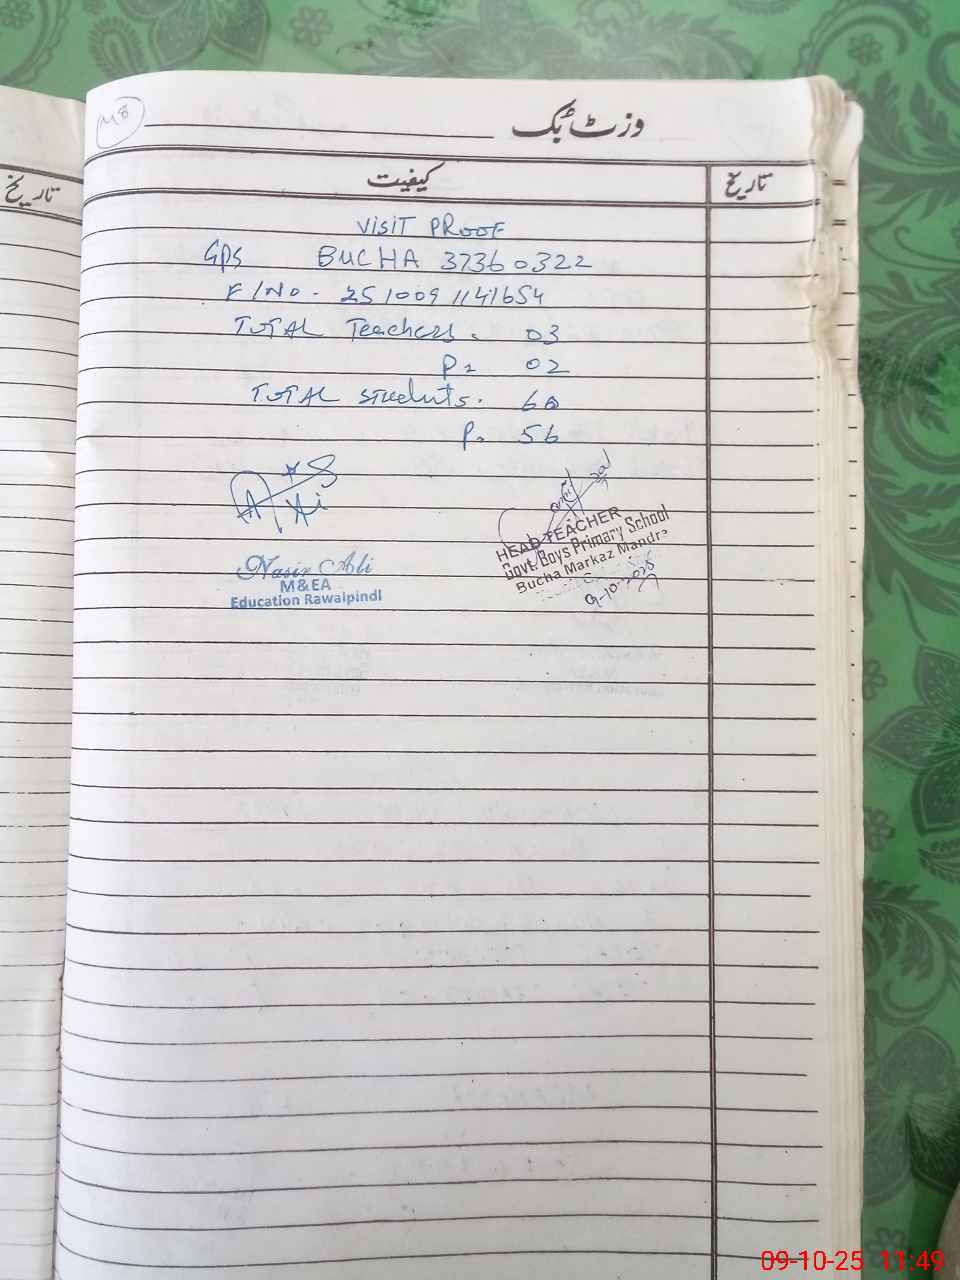 وزٹ بک
تاریخ
کیفیت
تاریخ
VISIT PROOF
GPS BUCHA 37360322
F/NO. 251009 1141654
TOTAL Teachers. 03
P= 02
TOTAL Students. 60
P. 56
Nasir Ali
M&EA
Education Rawalpindi
HEAD TEACHER
Govt. Boys Primary School
Bucha Markaz Mandra
9-10-2025
09-10-25 11:49